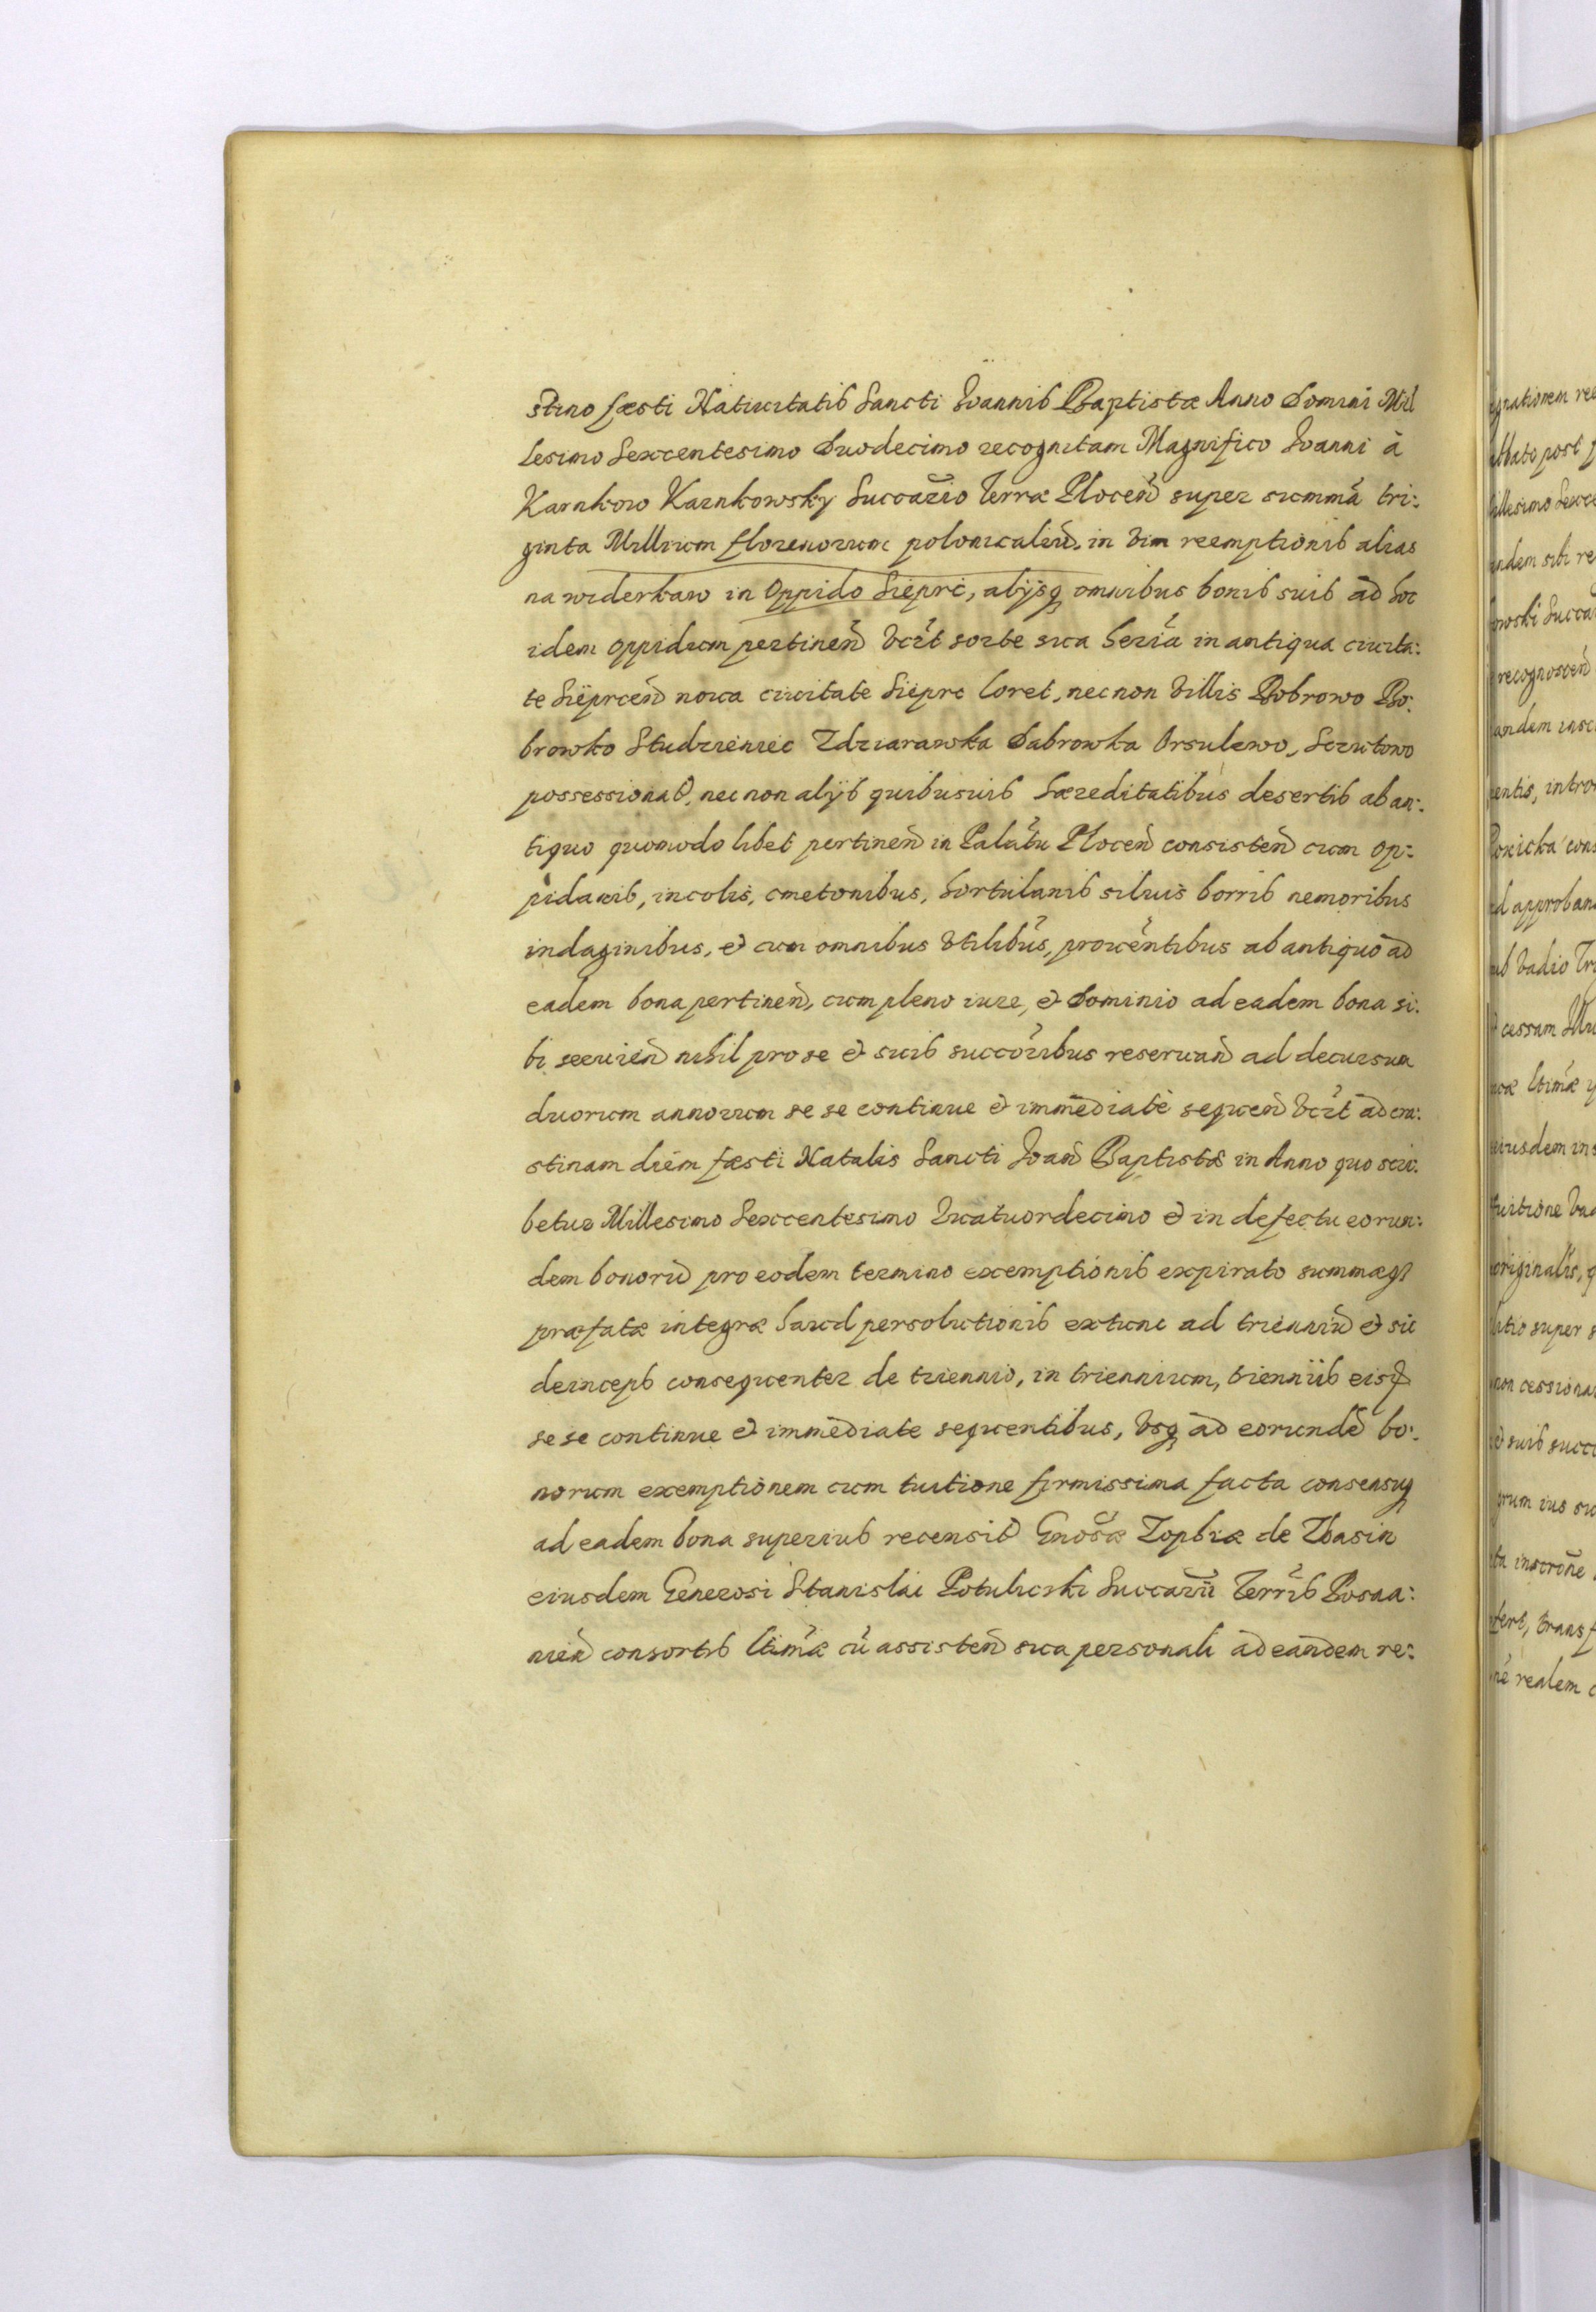 stino fæsti Natiuitatis Sancti Joannis Baptistæ Anno Domini Mil
lesimo Sexcentesimo Duodecimo recognitam Magnifico Joanni à
Karnkow Karnkowsky Succazio Terræ Plocen̄ super summā tri:
ginta Millium florenorum polonicaliū, in vim reemptionis alias
na widerkaw in Oppido Sieprc, alijsq omnibus bonis suis ad hoc
idem oppidum pertinen̄ vczt sorte sua hezia in antiqua ciuita:
te Sieprcen̄ noua ciuitate Sieprc loret, nec non villis Bobrowo Bo:
browko Studzieniec Zdziarawka Dabrowka Orsulewo, Sczutowo
possessionat̄, nec non alijs quibusuis hæreditatibus desertis ab an:
tiquo quomodo libet pertinen̄ in Palātu Plocen̄ consisten̄ cum op:
pidanis, incolis, cmetonibus, hortulanis siluis borris nemoribus
indaginibus, et cum omnibus vtilibus, prouentibus ab antiquo ad
eadem bona pertinen̄, cum pleno iure, et Dominio ad eadem bona si:
bi seruien̄ nihil pro se et suis succoribus reseruan̄ ad decursum
duorum annorum se se continue et immediatè sequen̄ vczt ad cra:
stinam diem fæsti Natalis Sancti Joan̄ Baptistæ in Anno quo scri:
betur Millesimo Sexcentesimo Quatuordecimo et in defectu eorun:
dem bonorū pro eodem termino exemptionis expirato summæq
præfatæ integræ haud persolutionis extunc ad trienniū et sic
deinceps consequenter de triennio, in triennium, trienniis eisq
se se continue et immediate sequentibus, vsq ad eorundē bo:
norum exemptionem cum tuitione firmissima facta consensuq
ad eadem bona superius recensit̄ Gnosæ Zophiæ de Zbasin
eiusdem Generosi Stanislai Potulicki Succarii Terris Posna:
nien̄ consortis ltimæ cū assisten̄ sua personali ad eandem re: